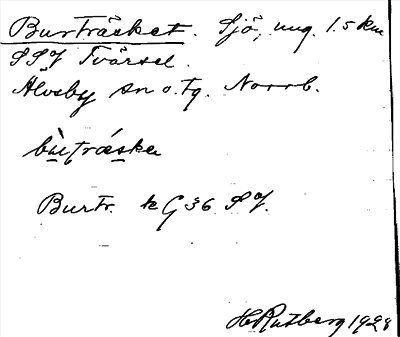 Burträsket. Sjö, ung. 1.5 km
SSO Tvärsel.
Älvsby sn o. tg. Norrb.
bùtrǽska
Burtr. k G 36 SO.
H. Rutberg 1928